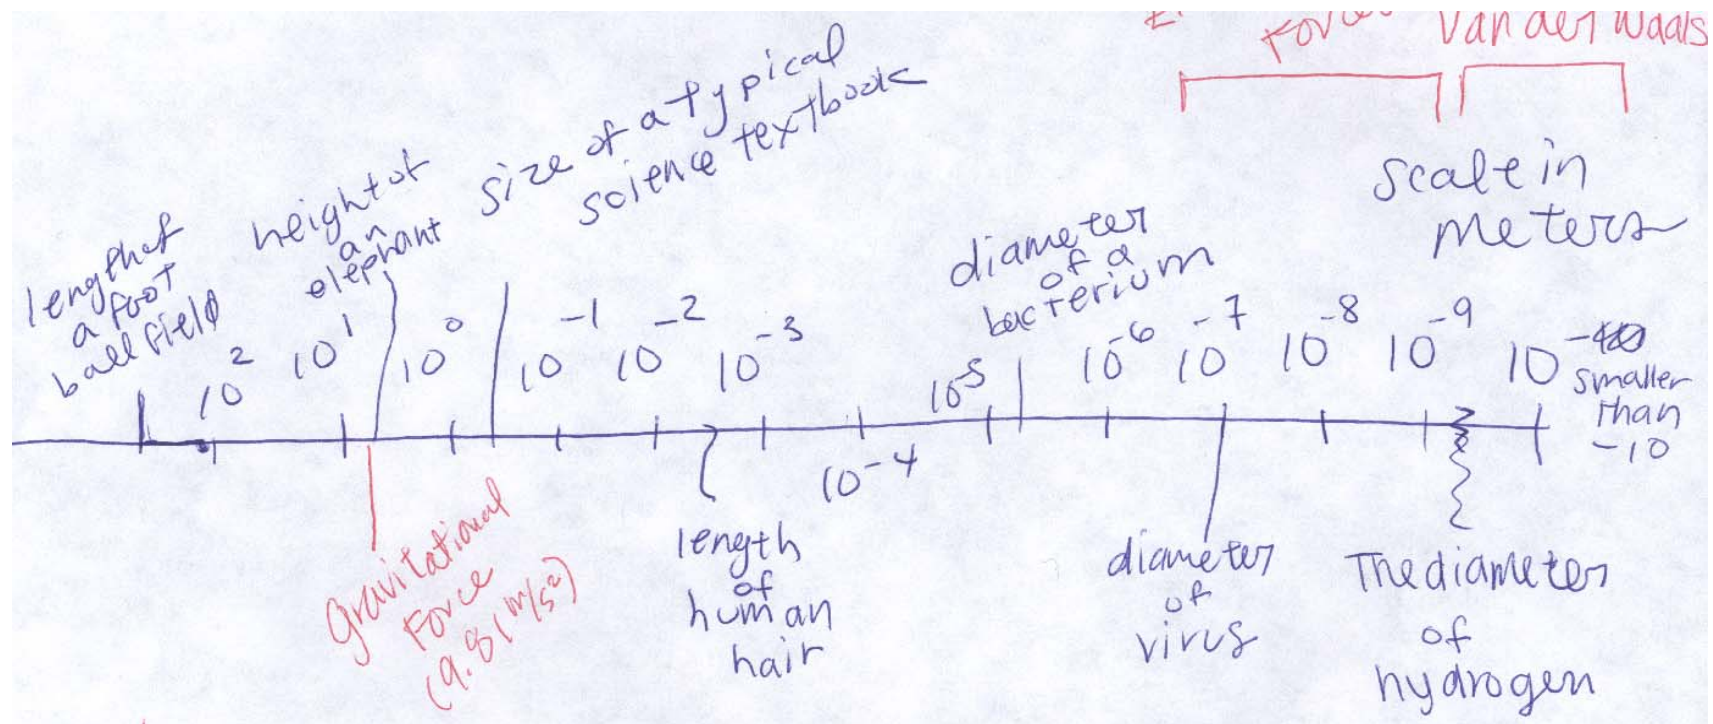 Force
Van der Waals
Scale in
meters
length of
a foot
ball field
height of
an
elephant
size of a typical
science textbook
diameter
of a
bacterium
10^2
10^1
10^0
10^-1
10^-2
10^-3
10^-4
10^-5
10^-6
10^-7
10^-8
10^-9
10^-10
smaller
than
-10
gravitational
Force
(9.81 m/s²)
length
of
human
hair
diameter
of
virus
The diameter
of
hydrogen